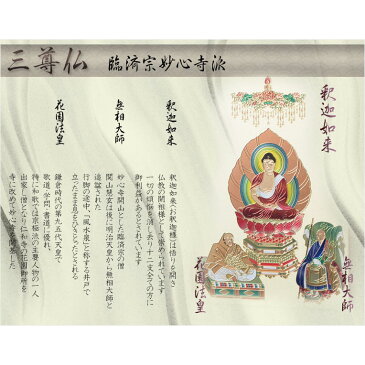 三尊仏 臨済宗妙心寺派
釈迦如来
釈迦如来(お釈迦様)は悟りを開き
仏教の開祖様として崇められています
一切の煩悩を消し去り十二支全ての方に
御利益があるとされています
無相大師
妙心寺開山とした臨済宗の僧
関山慧玄は後に明治天皇から無相大師と
追諡された
行脚の途中、「風水泉」と称する井戸で
立ったまま息をひきとったとされる
花園法皇
鎌倉時代の第九五代天皇で
歌道・学問・書道に優れ、
特に和歌では京極派の主要人物の一人
出家し僧となり仁和寺の花園御所を
寺に改めて妙心寺を開基した
釈迦如来
無相大師
花園法皇